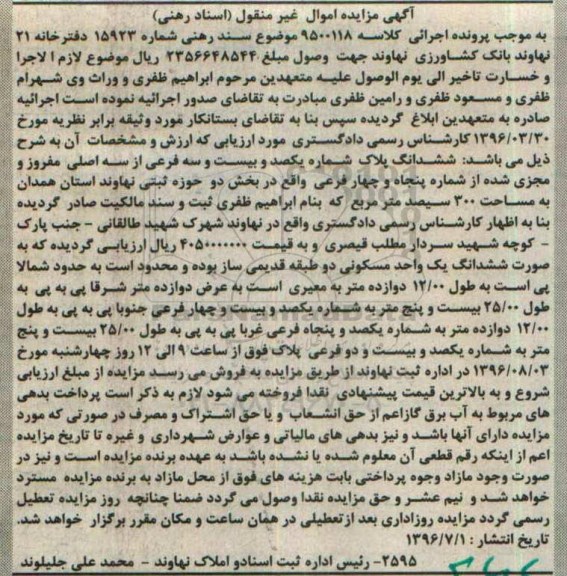 آگهی مزایده اموال غیر منقول (اسناد رهنی)
به موجب پرونده اجرائی کلاسه ۹۵۰۰۱۱۸ موضوع سند رهنی شماره ۱۵۹۲۳ دفترخانه ۲۱
نهاوند بانک کشاورزی نهاوند جهت وصول مبلغ ۲۳۵۶۶۴۸۵۴۴ ریال موضوع لازم الاجرا
و خسارت تاخیر الی یوم الوصول علیه متعهدین مرحوم ابراهیم ظفری و وراث وی شهرام
ظفری و مسعود ظفری و رامین ظفری مبادرت به تقاضای صدور اجرائیه نموده است اجرائیه
صادره به متعهدین ابلاغ گردیده سپس بنا به تقاضای بستانکار مورد وثیقه برابر نظریه مورخ
۱۳۹۶/۰۳/۳۰ کارشناس رسمی دادگستری مورد ارزیابی که ارزش و مشخصات آن به شرح
ذیل می باشد: ششدانگ پلاک شماره یکصد و بیست و سه فرعی از سه اصلی مفروز و
مجزی شده از شماره پنجاه و چهار فرعی واقع در بخش دو حوزه ثبتی نهاوند استان همدان
به مساحت ۳۰۰ سیصد متر مربع که بنام ابراهیم ظفری ثبت و سند مالکیت صادر گردیده
بنا به اظهار کارشناس رسمی دادگستری واقع در نهاوند شهرک شهید طالقانی - جنب پارک
- کوچه شهید سردار مطلب قیصری و به قیمت ۴۰۵۰۰۰۰۰۰۰ ریال ارزیابی گردیده که به
صورت ششدانگ یک واحد مسکونی دو طبقه قدیمی ساز بوده و محدود است به حدود شمالا
پی است به طول ۱۲/۰۰ دوازده متر به معبری است به عرض دوازده متر شرقا پی به پی به
طول ۲۵/۰۰ بیست و پنج متر به شماره یکصد و بیست و چهار فرعی جنوبا پی به پی به طول
۱۲/۰۰ دوازده متر به شماره یکصد و پنجاه فرعی غربا پی به پی به طول ۲۵/۰۰ بیست و پنج
متر به شماره یکصد و بیست و دو فرعی پلاک فوق از ساعت ۹ الی ۱۲ روز چهارشنبه مورخ
۱۳۹۶/۰۸/۰۳ در اداره ثبت نهاوند از طریق مزایده به فروش می رسد مزایده از مبلغ ارزیابی
شروع و به بالاترین قیمت پیشنهادی نقدا فروخته می شود لازم به ذکر است پرداخت بدهی
های مربوط به آب برق گاز اعم از حق انشعاب و یا حق اشتراک و مصرف در صورتی که مورد
مزایده دارای آنها باشد و نیز بدهی های مالیاتی و عوارض شهرداری و غیره تا تاریخ مزایده
اعم از اینکه رقم قطعی آن معلوم شده یا نشده باشد به عهده برنده مزایده است و نیز در
صورت وجود مازاد وجوه پرداختی بابت هزینه های فوق از محل مازاد به برنده مزایده مسترد
خواهد شد و نیم عشر و حق مزایده نقدا وصول می گردد ضمنا چنانچه روز مزایده تعطیل
رسمی گردد مزایده روز اداری بعد از تعطیلی در همان ساعت و مکان مقرر برگزار خواهد شد.
تاریخ انتشار : ۱۳۹۶/۷/۱
۲۵۹۵- رئیس اداره ثبت اسناد و املاک نهاوند - محمد علی جلیلوند